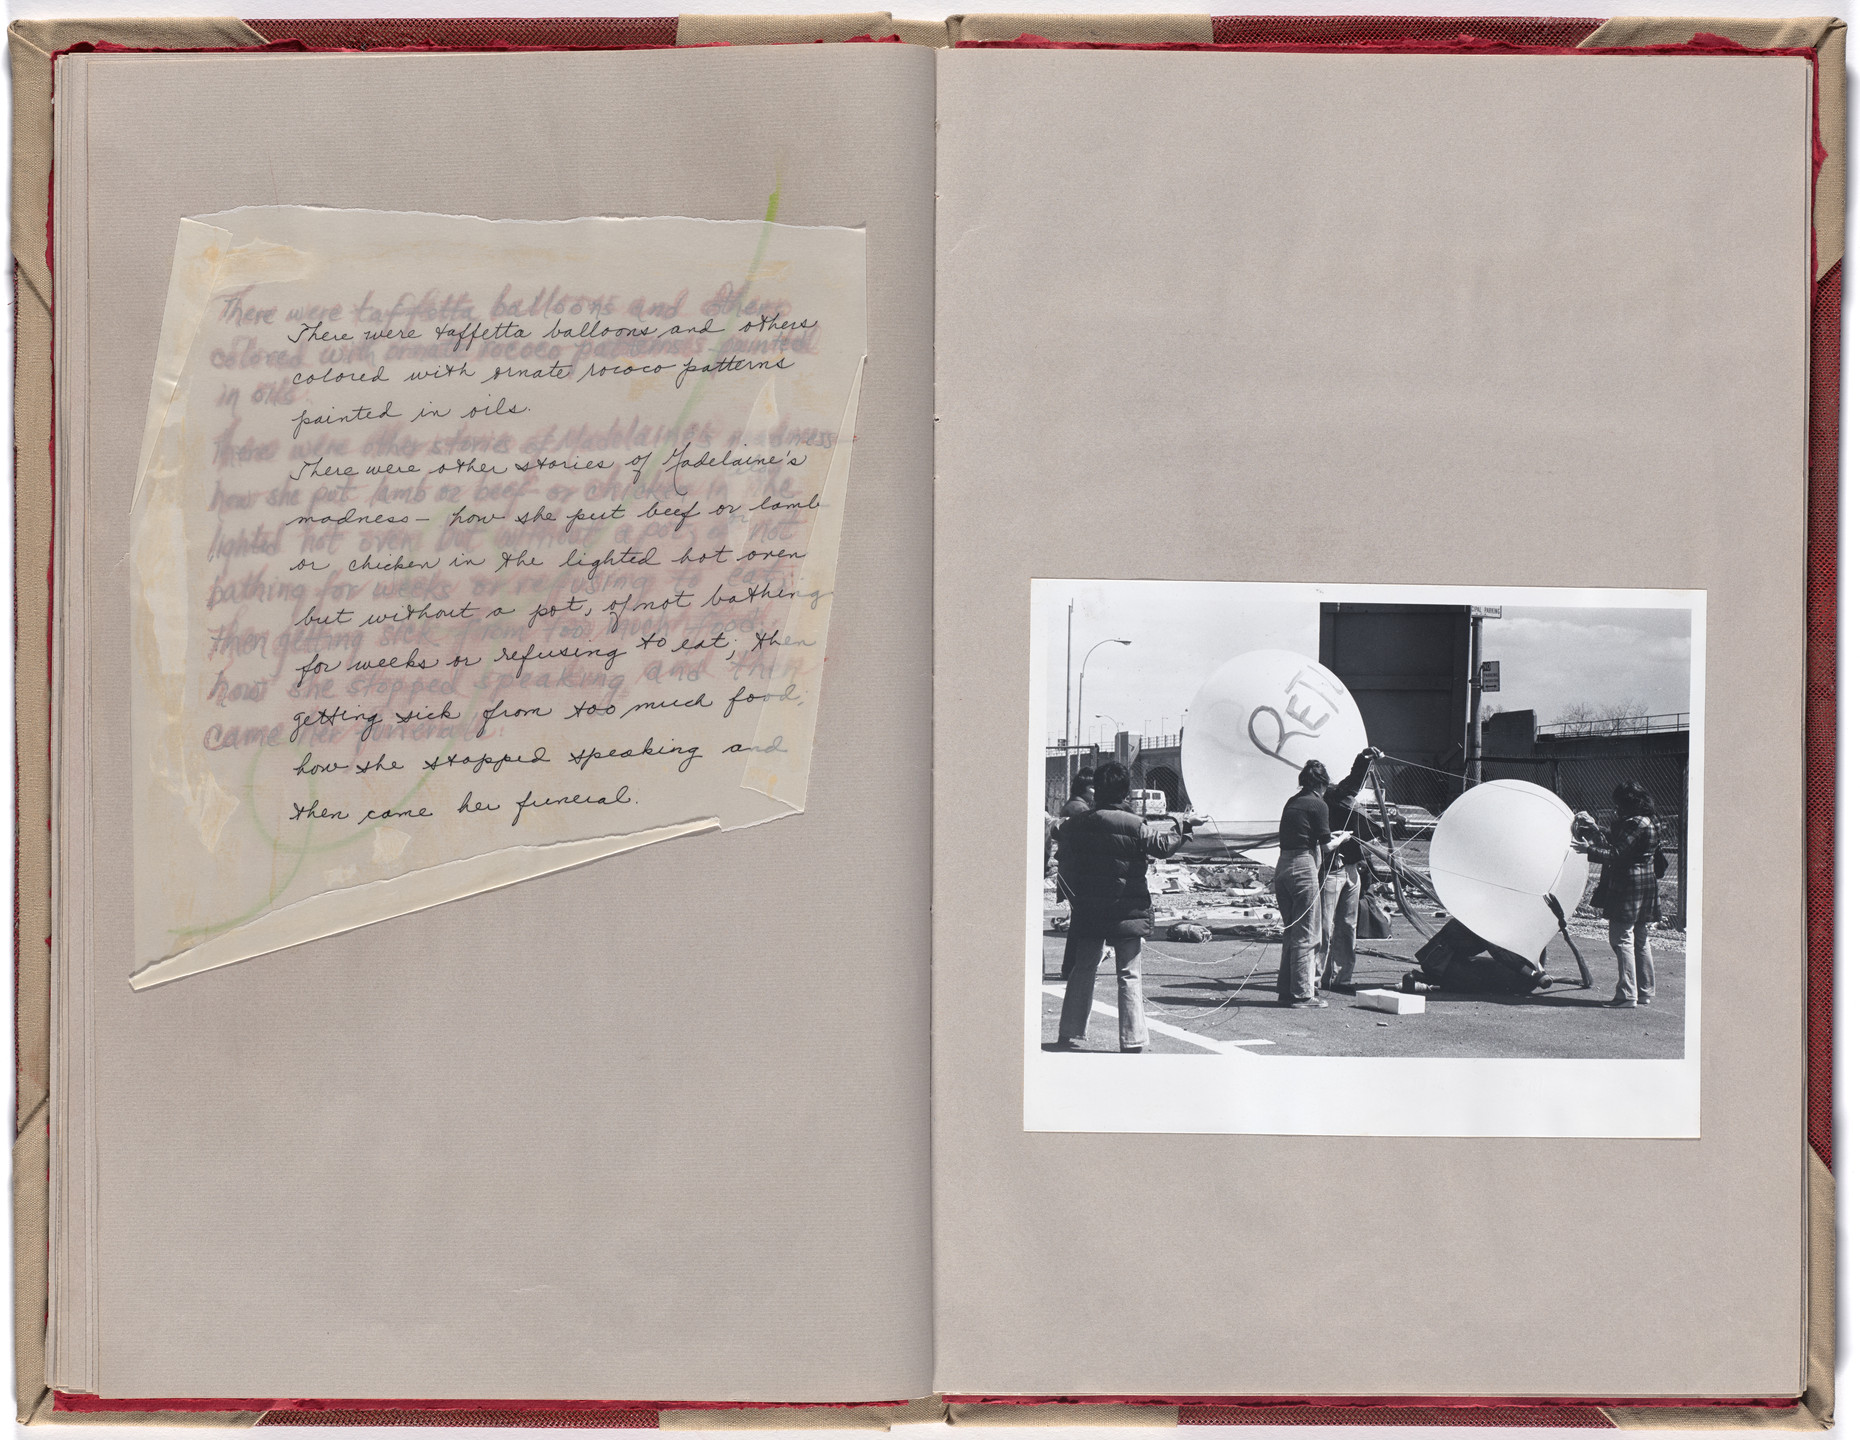 There were taffetta balloons and others
colored with ornate rococo patterns
painted in oils.
There were other stories of Madelaine's
madness – how she put beef or lamb
or chicken in the lighted hot oven
but without a pot, of not bathing
for weeks or refusing to eat; then
getting sick from too much food;
how she stopped speaking and
then came her funeral.
There were taffetta balloons and others
colored with ornate rococo patterns painted
in oils.
There were other stories of Madelaine's madness
how she put lamb or beef or chicken in the
lighted hot oven but without a pot, of not
bathing for weeks or refusing to eat;
then getting sick from too much food;
how she stopped speaking and then
came her funeral.
RETI
PARKING